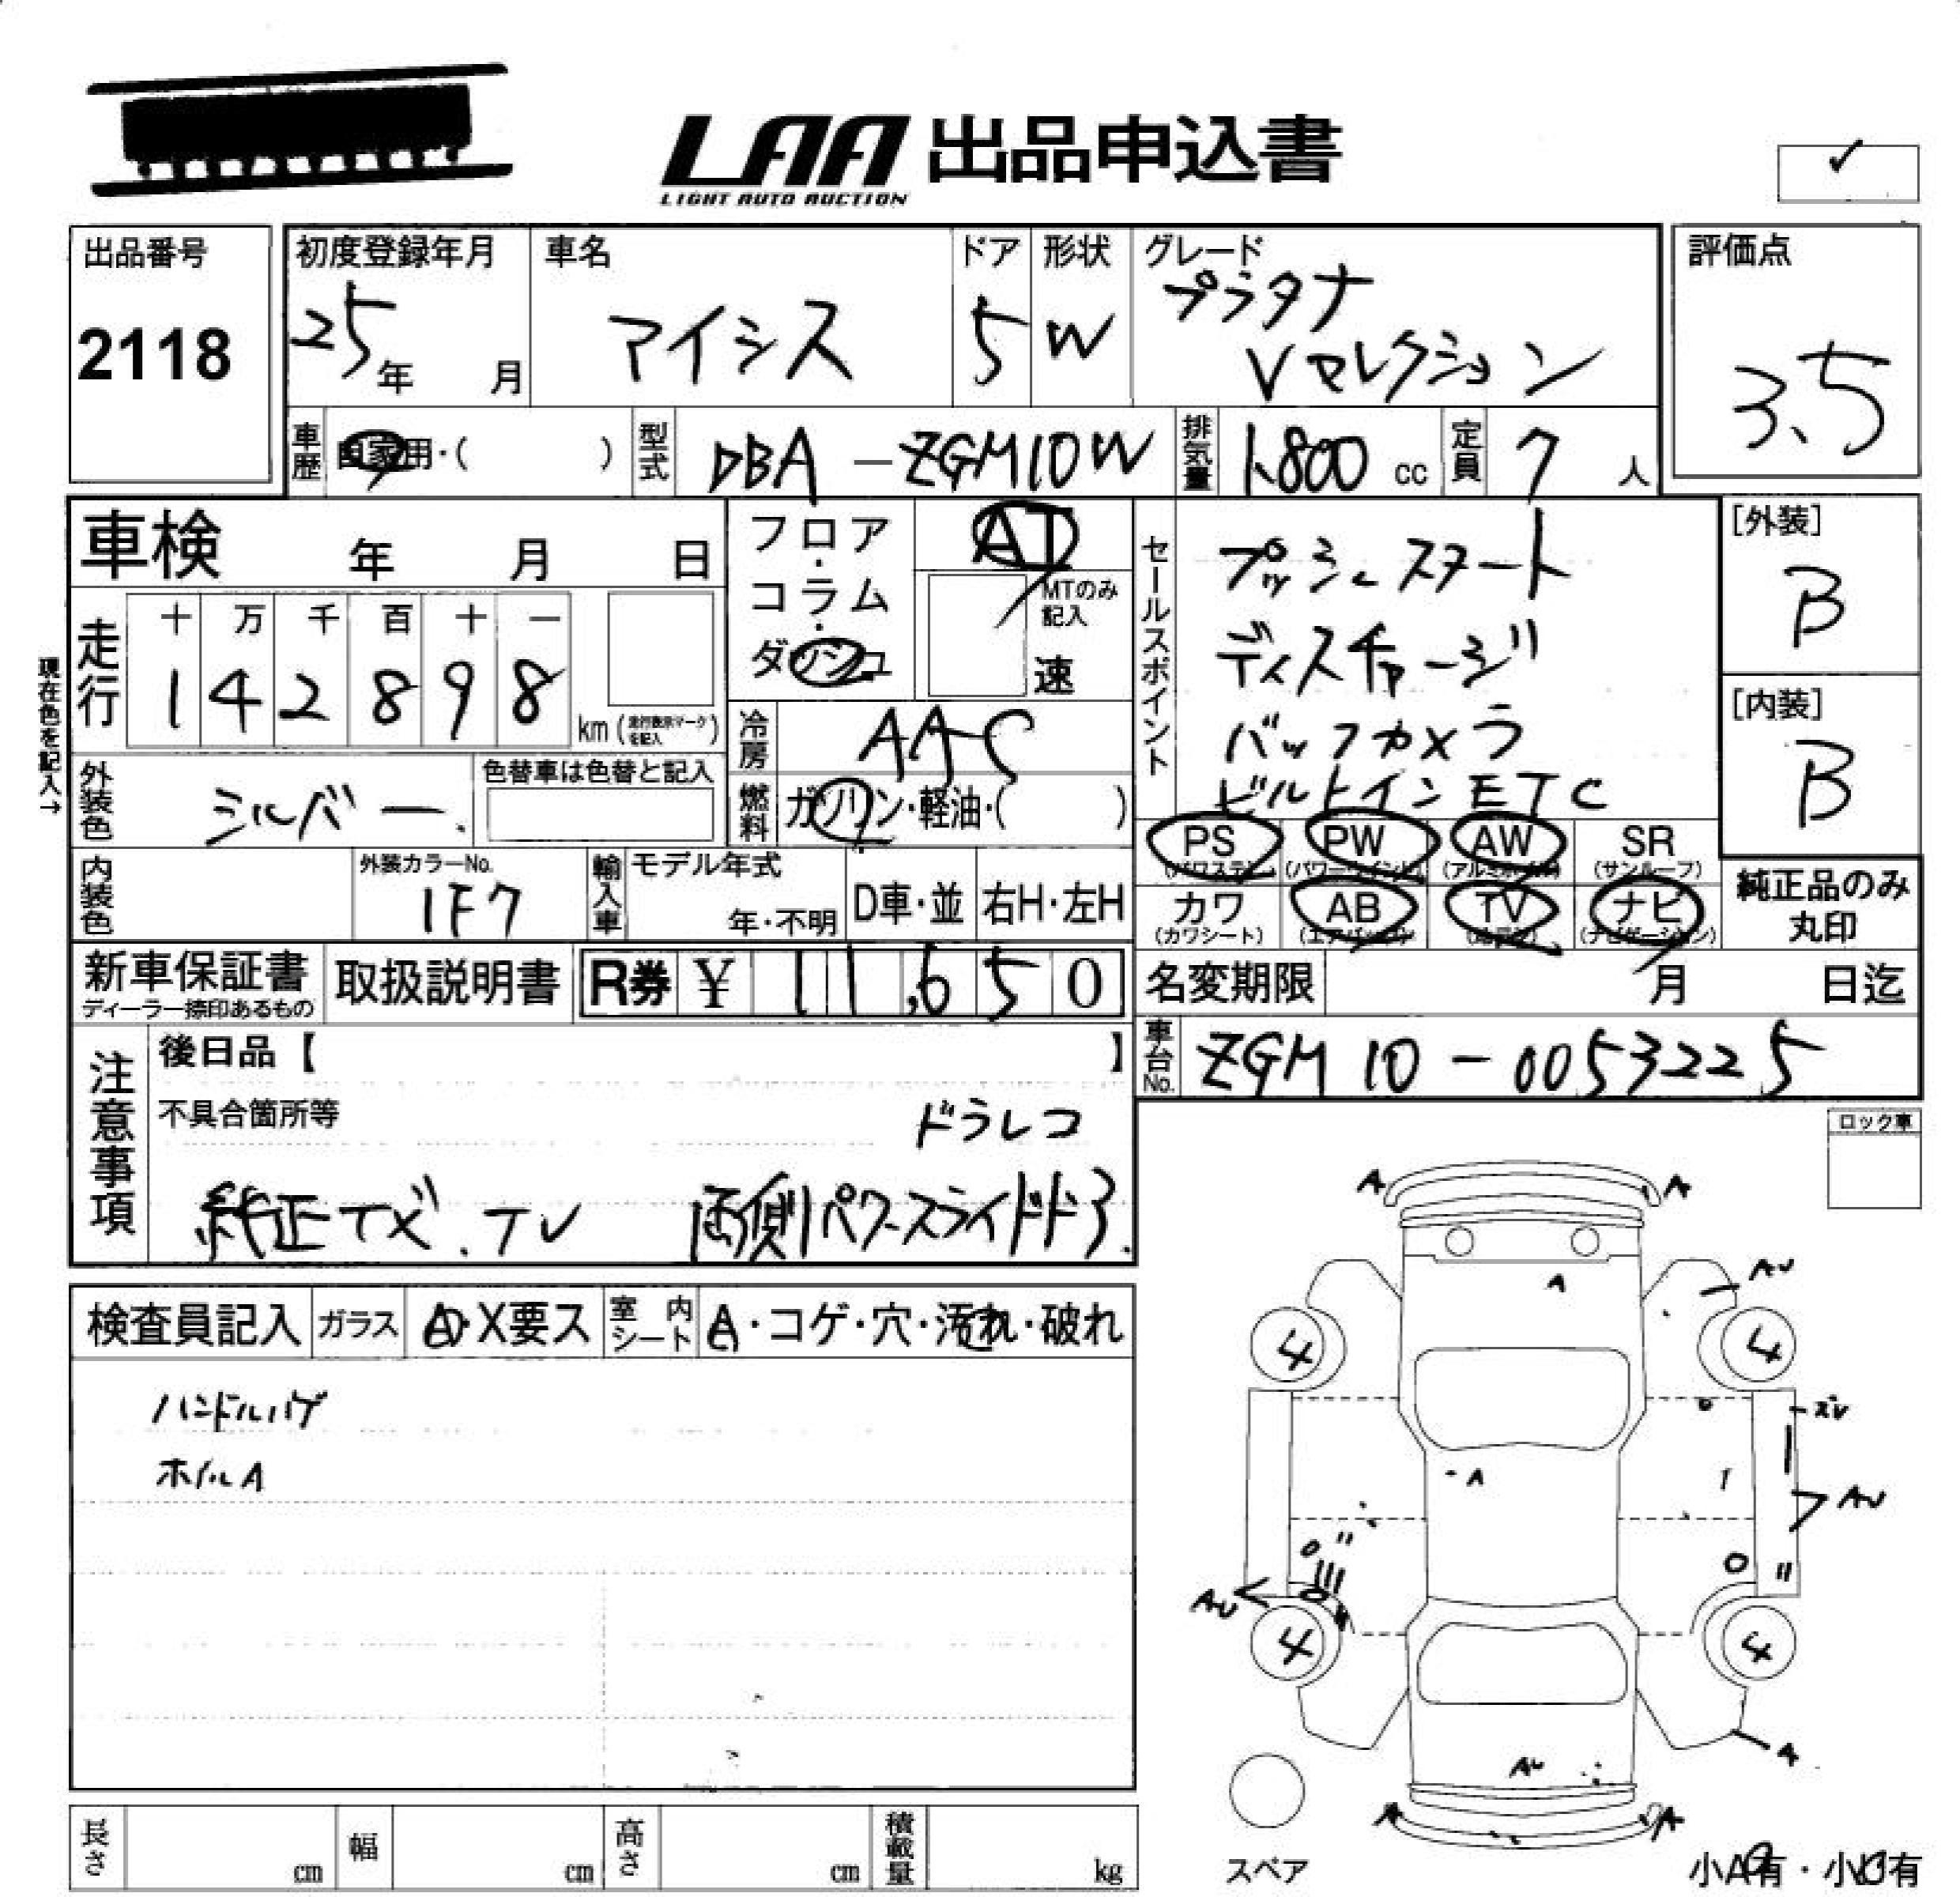 LAA 出品申込書
LIGHT AUTO AUCTION
✓
出品番号
2118
初度登録年月
25年 月
車名
アイシス
ドア
5
形状
W
グレード
プラタナ
Vセレクション
評価点
3.5
車歴 自家用・( )
型式 DBA-ZGM10W
排気量 1.800 cc
定員 7 人
車検 年 月 日
現在色を記入→
走行
十 万 千 百 十 一
1 4 2 8 9 8
km (走行表示マークを記入)
フロア・コラム・ダッシュ
AT
MTのみ記入
速
冷房 AAC
燃料 ガソリン・軽油・( )
外装色 シルバー.
色替車は色替と記入
内装色
外装カラーNo.
1F7
輸入車
モデル年式
年・不明
D車・並
右H・左H
セールスポイント
プッシュスタート
ディスチャージ
バックカメラ
ビルトインETC
PS
(パワステ)
PW
(パワーウインド)
AW
(アルミホイル)
SR
(サンルーフ)
カワ
(カワシート)
AB
(エアバッグ)
TV
ナビ
(ナビゲーション)
[外装]
B
[内装]
B
純正品のみ
丸印
新車保証書
ディーラー捺印あるもの
取扱説明書
R券 ¥ 11,650
名変期限 月 日迄
車台No. ZGM10-0053225
注意事項
後日品【 】
不具合箇所等
ドラレコ
純正ナビ.TV 両側パワースライドドア.
ロック車
検査員記入
ガラス
A・X要ス
室内シート
A・コゲ・穴・汚れ・破れ
ハンドルハゲ
ホイルA
A A
A
AU
4 4
A
AU
AU
4 4
AU
A
A A
スペア
小A有・小U有
長さ cm
幅 cm
高さ cm
積載量 kg